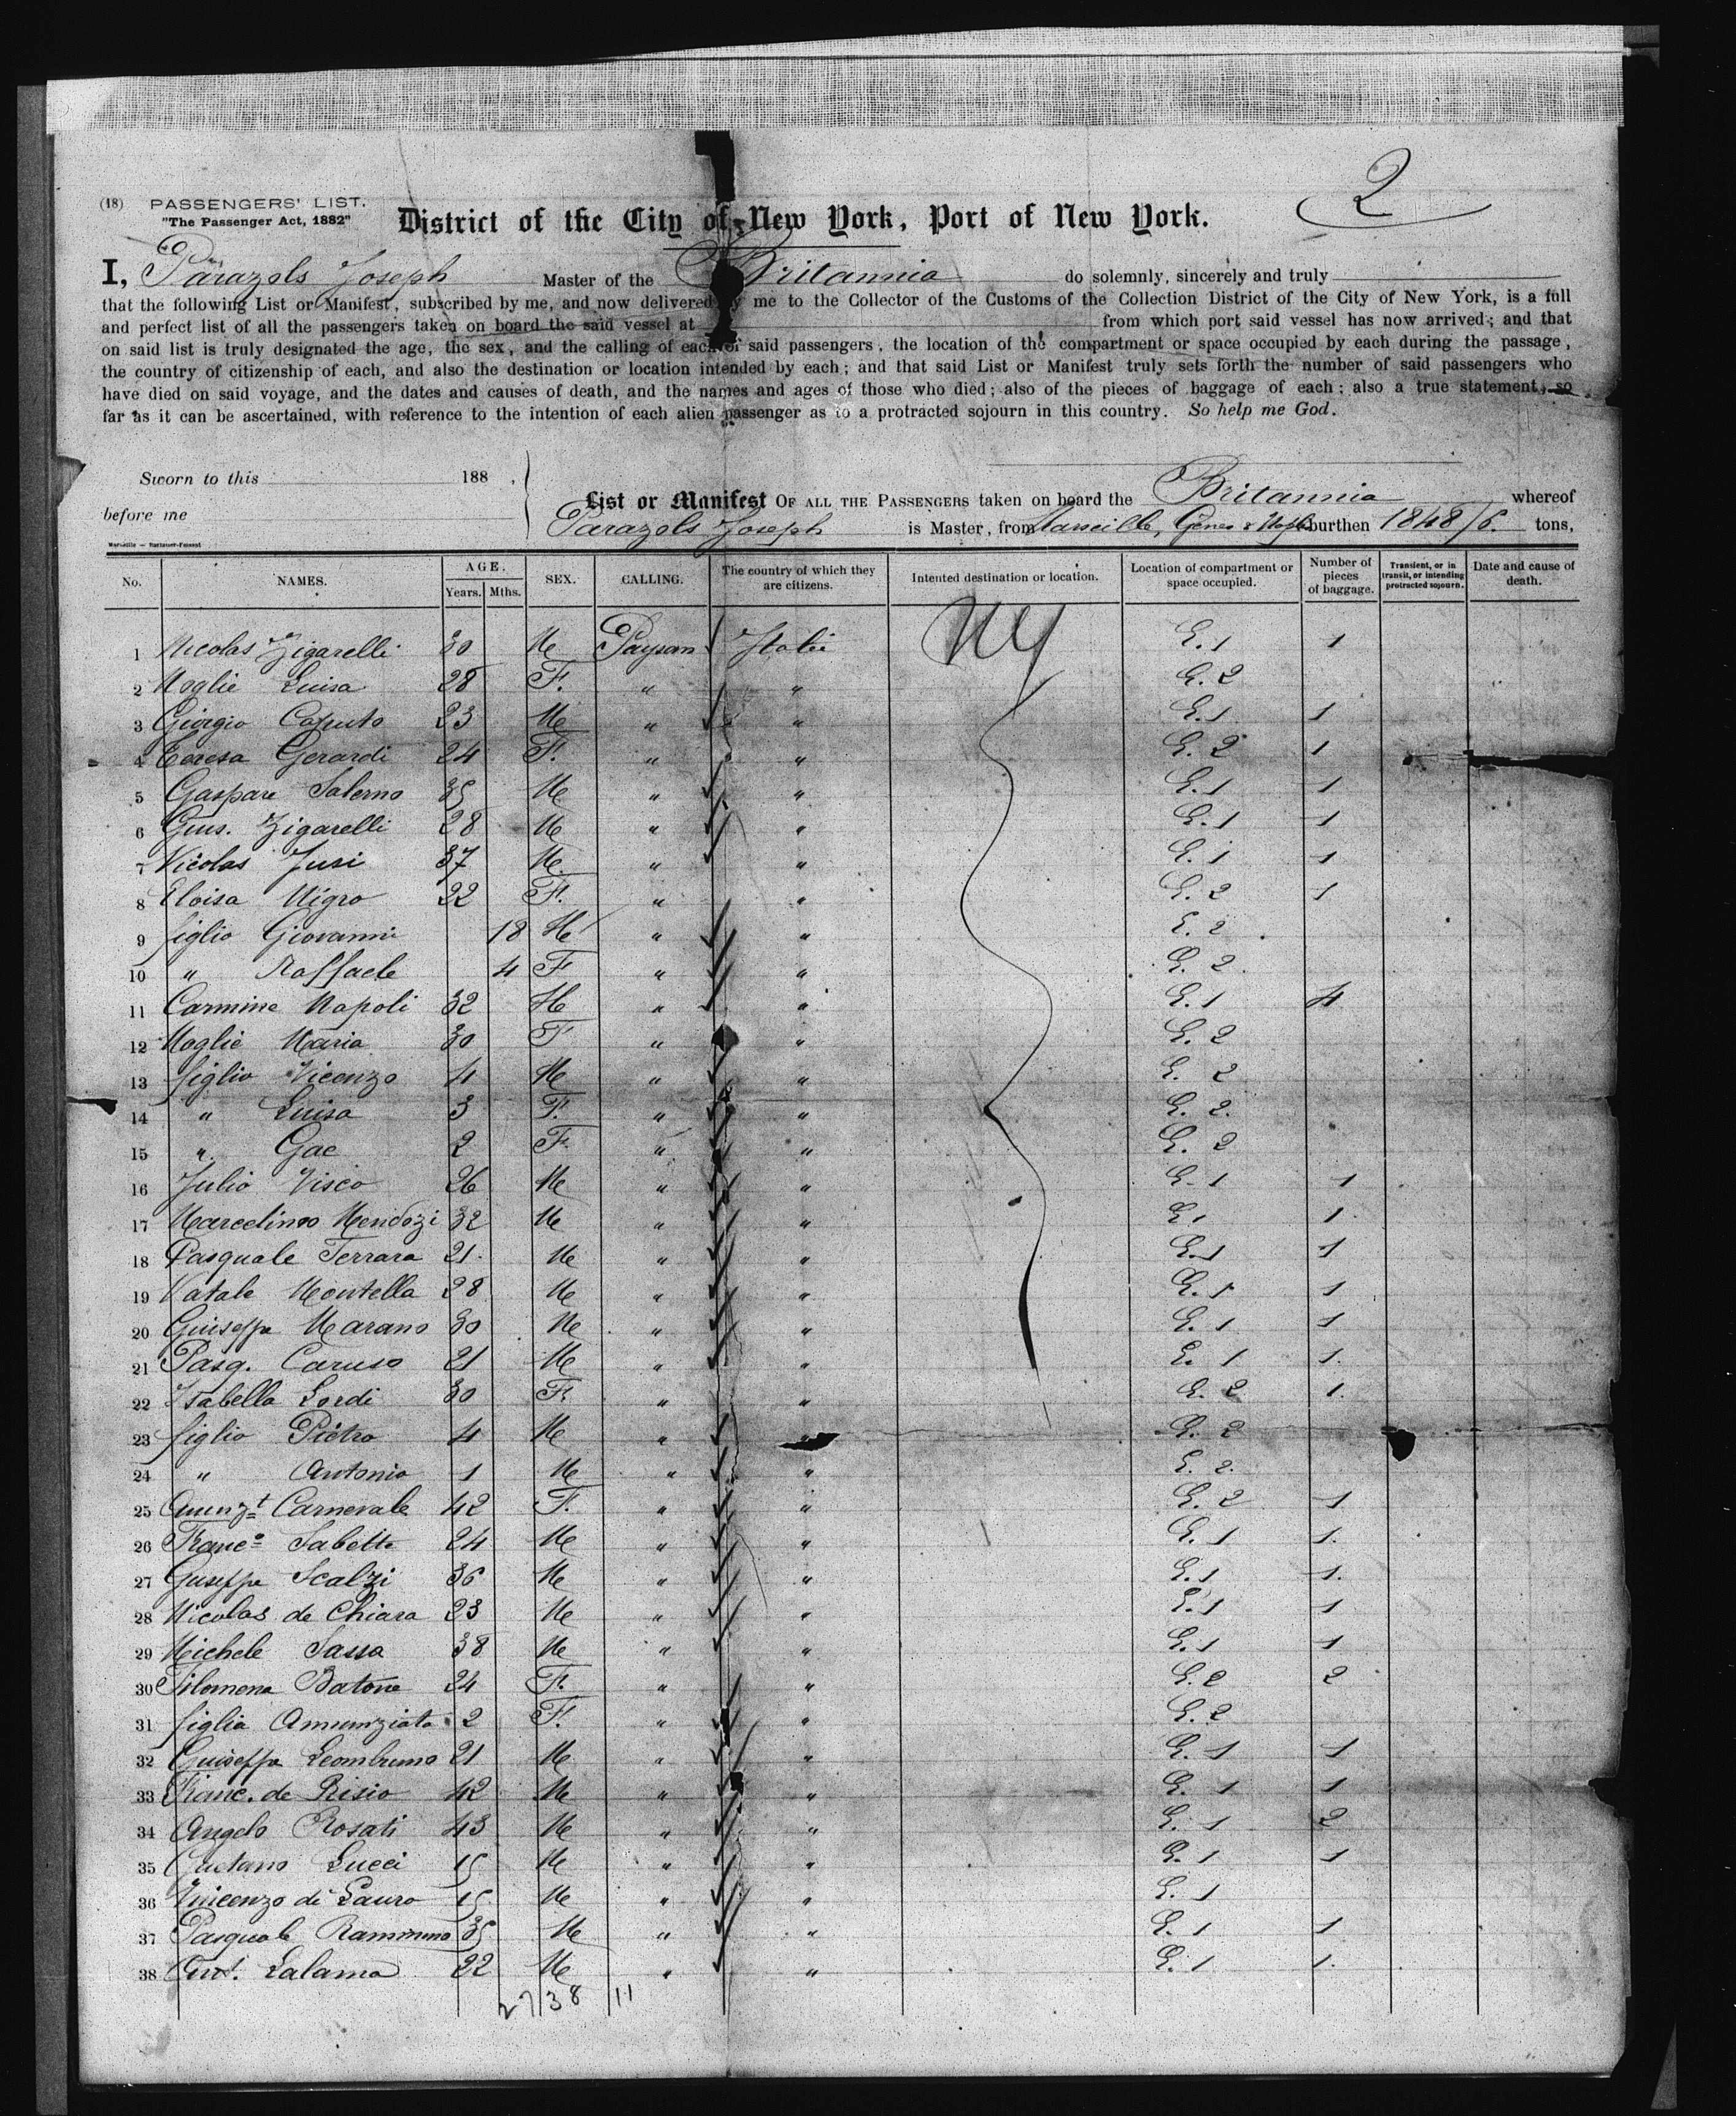 2
(18) PASSENGERS' LIST.
"The Passenger Act, 1882"
District of the City of New York, Port of New York.
I, Parazols Joseph Master of the Britannia do solemnly, sincerely and truly
that the following List or Manifest, subscribed by me, and now delivered by me to the Collector of the Customs of the Collection District of the City of New York, is a full
and perfect list of all the passengers taken on board the said vessel at from which port said vessel has now arrived; and that
on said list is truly designated the age, the sex, and the calling of each of said passengers, the location of the compartment or space occupied by each during the passage,
the country of citizenship of each, and also the destination or location intended by each; and that said List or Manifest truly sets forth the number of said passengers who
have died on said voyage, and the dates and causes of death, and the names and ages of those who died; also of the pieces of baggage of each; also a true statement, so
far as it can be ascertained, with reference to the intention of each alien passenger as to a protracted sojourn in this country. So help me God.
Sworn to this 188 ,
before me
List or Manifest OF ALL THE PASSENGERS taken on board the Britannia whereof
Parazols Joseph is Master, from Marseille, Genes & Naples burthen 1848/6. tons,
No. NAMES. AGE. Years. Mths. SEX. CALLING. The country of which they are citizens. Intented destination or location. Location of compartment or space occupied. Number of pieces of baggage. Transient, or in transit, or intending protracted sojourn. Date and cause of death.
1 Nicolas Zigarelli 30 Me Paysan Italie NY E. 1 1
2 Moglie Luisa 28 F. " " E. 2
3 Giorgio Caputo 23 Me " " E. 1 1
4 Teresa Gerardi 24 F. " " E. 2 1
5 Gaspare Salerno 35 Me " " E. 1 1
6 Gius. Zigarelli 28 Me " " E. 1 1
7 Nicolas Jusi 37 Me " " E. 1 1
8 Eloisa Nigro 22 F. " " E. 2 1
9 figlio Giovanni 18 Me " " E. 2
10 " Raffaele 4 F " " E. 2
11 Carmine Napoli 32 Me " " E. 1 4
12 Moglie Maria 30 F " " E. 2
13 figlio Vicenzo 4 Me " " E. 2
14 " Luisa 3 F. " " E. 2.
15 " Gae 2 F. " " E. 2
16 Julio Visco 26 Me " " E. 1 1
17 Marcelinoo Mendozi 32 Me " " E. 1 1
18 Pasquale Ferrara 21 Me " " E. 1 1
19 Natale Montella 28 Me " " E. 1 1
20 Guiseppe Marano 30 Me " " E. 1 1
21 Pasq. Caruso 21 Me " " E. 1 1
22 Isabella Lordi 30 F. " " E. 2 1.
23 figlio Pietro 4 Me " " E. 2
24 " Antonio 1 Me " " E. 2.
25 Carnevale 42 F. " " E. 2 1
26 Franco Sabetta 24 Me " " E. 1 1.
27 Guseppe Scalzi 36 Me " " E. 1 1.
28 Nicolas de Chiara 23 Me " " E. 1 1
29 Michele Sassa 38 Me " " E. 1 1
30 Filomena Batone 24 F. " " E. 2 2
31 figlia Amunziata 2 F. " " E. 2
32 Guiseppa Leombruno 21 Me " " E. 1 1
33 Franc. de Risio 42 Me " " E. 1 1
34 Angelo Rosati 43 Me " " E. 1 2
35 Gaetano Lucci 15 Me " " E. 1 1
36 Vincenzo di Lauro 15 Me " " E. 1
37 Pasquale 35 Me " " E. 1 1
38 Ant. Lalama 22 Me " " E. 1 1.
27/38 11